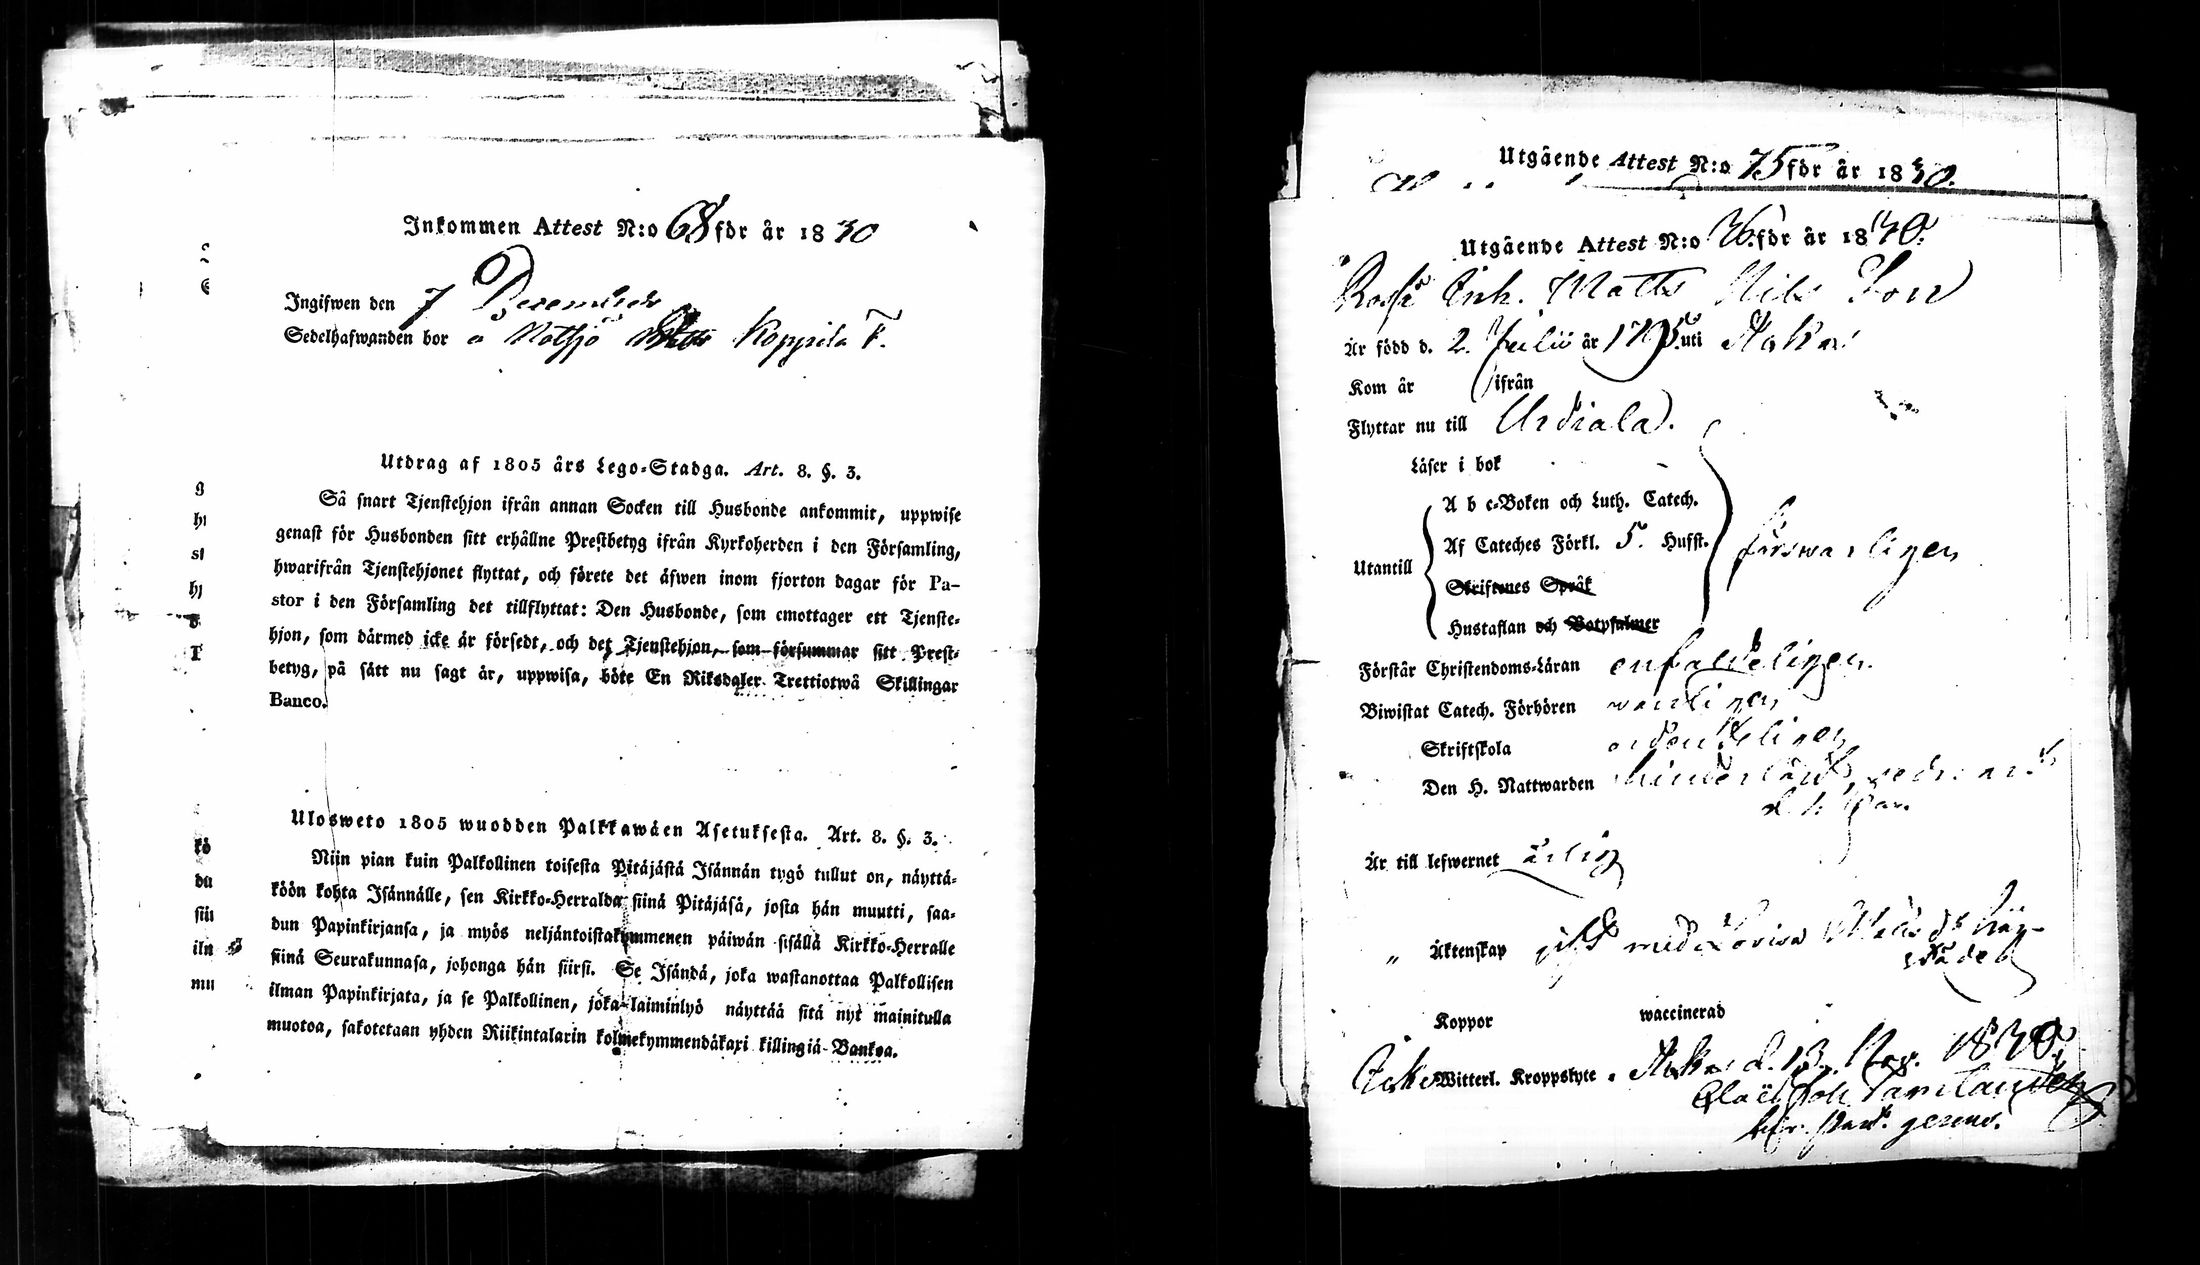 Inkommen Attest N:o 68 för år 1830
Ingifwen den 7 December
Sedelhafwanden bor å Notsjö Koppila T.
Utdrag af 1805 års Lego-Stadga. Art. 8. §. 3.
Så snart Tjenstehjon ifrån annan Socken till Husbonde ankommit, uppwise
genast för Husbonden sitt erhållne Prestbetyg ifrån Kyrkoherden i den Församling,
hwarifrån Tjenstehjonet flyttat, och förete det äfwen inom fjorton dagar för Pa-
stor i den Församling det tillflyttat: Den Husbonde, som emottager ett Tjenste-
hjon, som därmed icke är försedt, och det Tjenstehjon, som försummar sitt Prest-
betyg, på sätt nu sagt är, uppwisa, böte En Riksdaler Trettiotwå Skillingar
Banco.
Ulosweto 1805 wuodden Palkkawäen Asetuksesta. Art. 8. §. 3.
Nijn pian kuin Palkollinen toisesta Pitäjästä Isännän tygö tullut on, näyttä-
köön kohta Isännälle, sen Kirkko-Herralda siinä Pitäjäsä, josta hän muutti, saa-
dun Papinkirjansa, ja myös neljäntoistakymmenen päiwän sisällä Kirkko-Herralle
siinä Seurakunnasa, johonga hän siirsi. Se Isändä, joka wastanottaa Palkollisen
ilman Papinkirjata, ja se Palkollinen, joka laiminlyö näyttää sitä nyt mainitulla
muotoa, sakotetaan yhden Riikintalarin kolmekymmendäkaxi killingiä Bankoa.
Utgående Attest N:o 75 för år 1830.
Utgående Attest N:o 76. för år 1830.
Inh. Matts Nils Son
Är född d. 2. Julii år 1795. uti Akas
Kom år ifrån
Flyttar nu till Urdiala.
Läser i bok
A b c-Boken och Luth. Catech.
Utantill Af Cateches Förkl. 5. Hufst. förswarligen
Skriftenes Språk
Hustaflan och Botpsalmer
Förstår Christendoms-Läran enfaldeligen.
Biwistat Catech. Förhören wanligen
Skriftskola ordenteligen
Den H. Nattwarden
Är till lefwernet ärlig
" Äktenskap gift med Lovisa
Koppor waccinerad
Icke Witterl. Kroppslyte. Akas d. 13. Nov. 1830